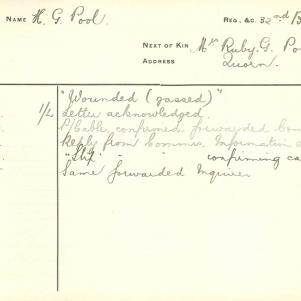 NAME H. G. Pool. REG. &C. 32nd B
NEXT OF KIN Mrs Ruby. G. Po
ADDRESS Quorn.
"Wounded (gassed)"
1/2 Letter acknowledged.
P/Cable, confirmed forwarded Com
Reply from Commis. Information
" " " confirming ca
Same forwarded Inquirer